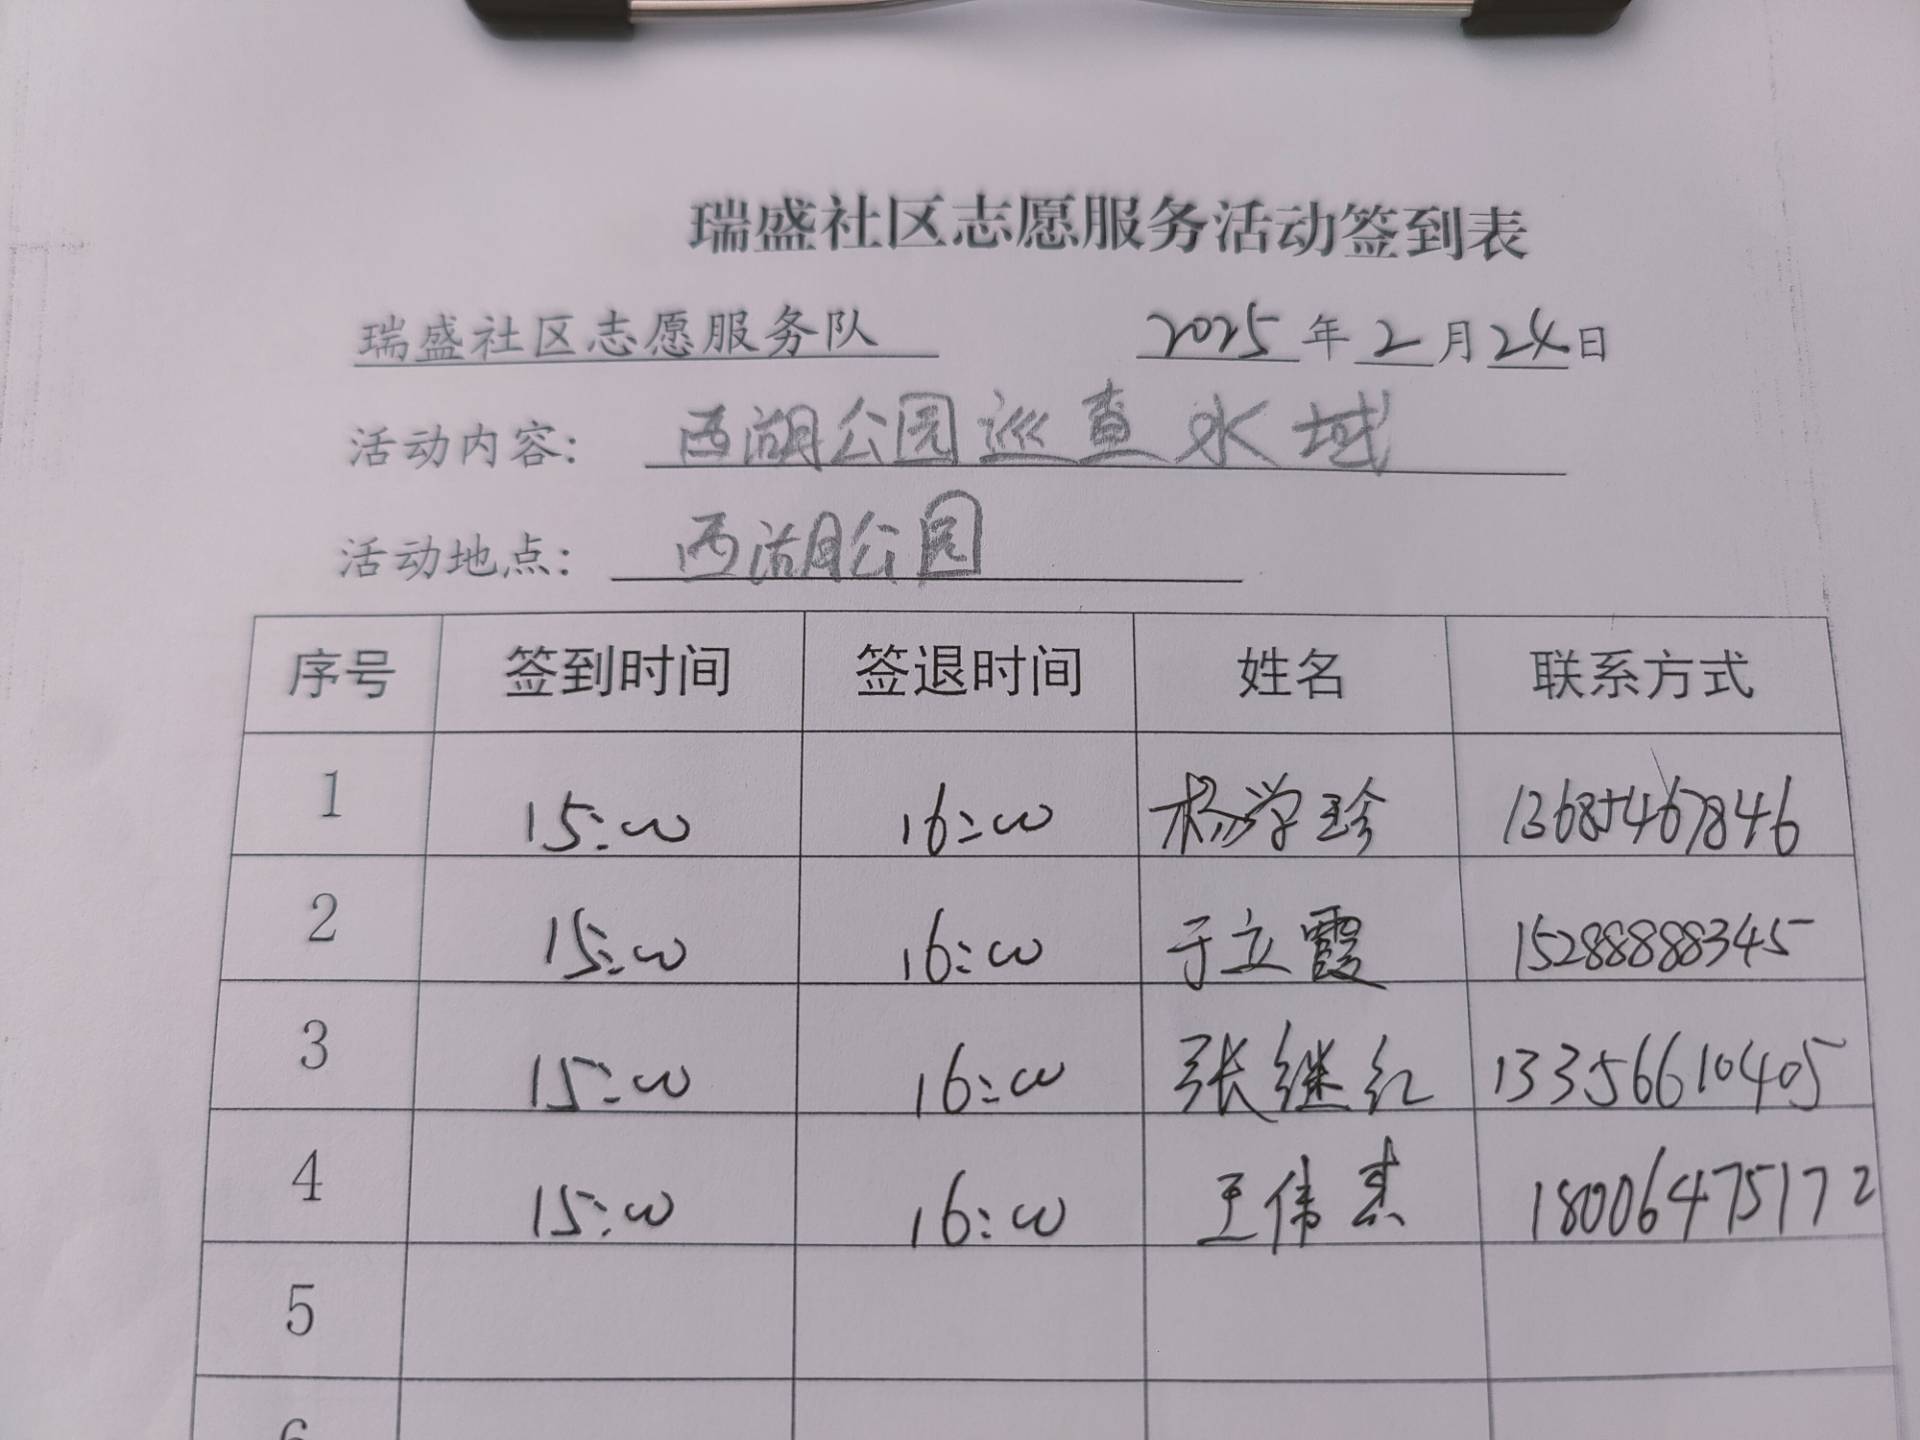 瑞盛社区志愿服务活动签到表
瑞盛社区志愿服务队 2025年2月24日
活动内容： 西湖公园巡查水域
活动地点： 西湖公园
序号 签到时间 签退时间 姓名 联系方式
1 15:00 16:00 杨学珍 13685467846
2 15:00 16:00 于立霞 15288888345
3 15:00 16:00 张继红 13356610405
4 15:00 16:00 王伟杰 18006475172
5
6